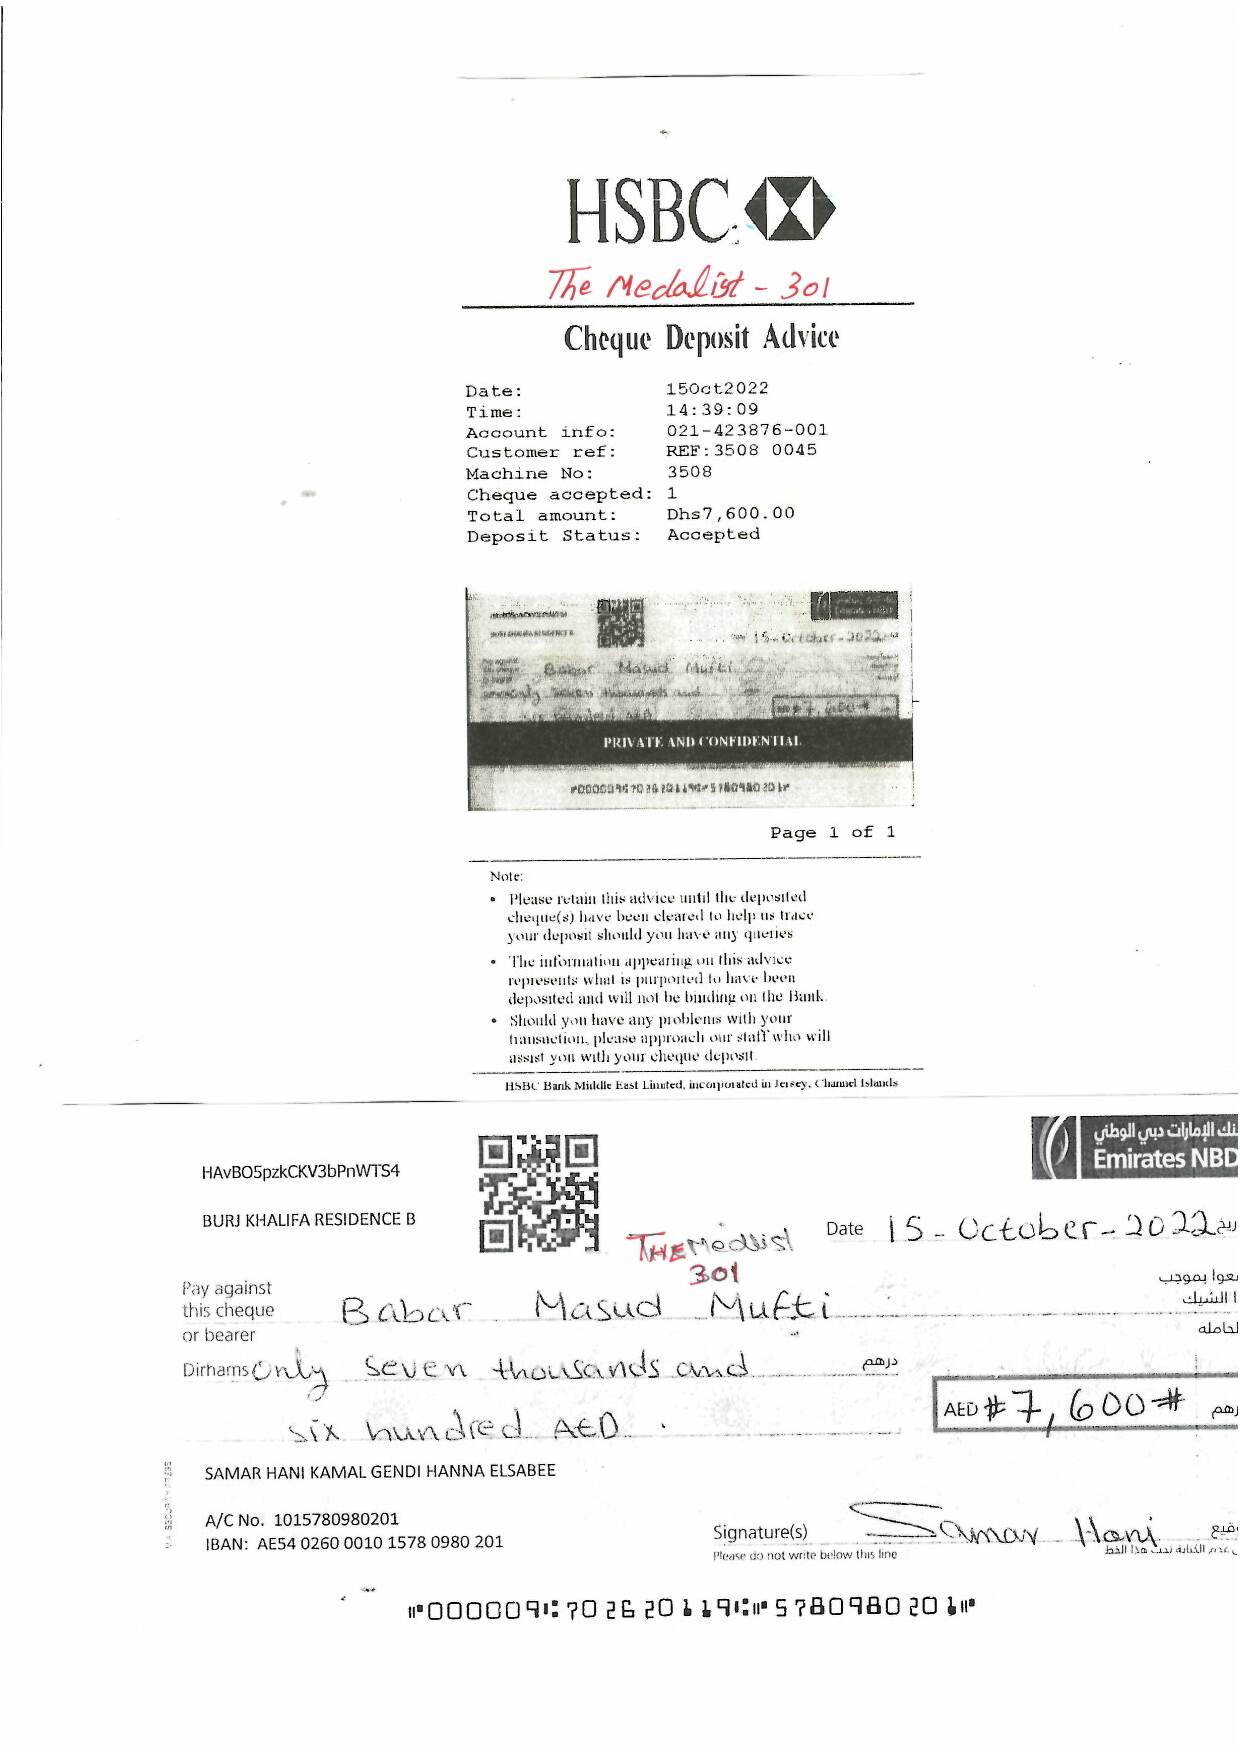 HSBC
The Medalist - 301
Cheque Deposit Advice
Date: 15Oct2022
Time: 14:39:09
Account info: 021-423876-001
Customer ref: REF:3508 0045
Machine No: 3508
Cheque accepted: 1
Total amount: Dhs7,600.00
Deposit Status: Accepted
15-October-2022
Babar Masud Mufti
only seven thousands and
PRIVATE AND CONFIDENTIAL
Page 1 of 1
Note:
• Please retain this advice until the deposited
cheque(s) have been cleared to help us trace
your deposit should you have any queries
• The information appearing on this advice
represents what is purported to have been
deposited and will not be binding on the Bank.
• Should you have any problems with your
transaction, please approach our staff who will
assist you with your cheque deposit.
HSBC Bank Middle East Limited, incorporated in Jersey, Channel Islands
بنك الإمارات دبي الوطني
Emirates NBD
HAvBO5pzkCKV3bPnWTS4
BURJ KHALIFA RESIDENCE B
THE Medalist
301
Date 15-October-2022
Pay against
this cheque
or bearer
Babar Masud Mufti
Dirhams Only seven thousands and درهم
six hundred AED.
AED #7,600#
SAMAR HANI KAMAL GENDI HANNA ELSABEE
A/C No. 1015780980201
IBAN: AE54 0260 0010 1578 0980 201
Signature(s) Samar Hani
Please do not write below this line
⑈000009⑆702620119⑆⑈5780980201⑈